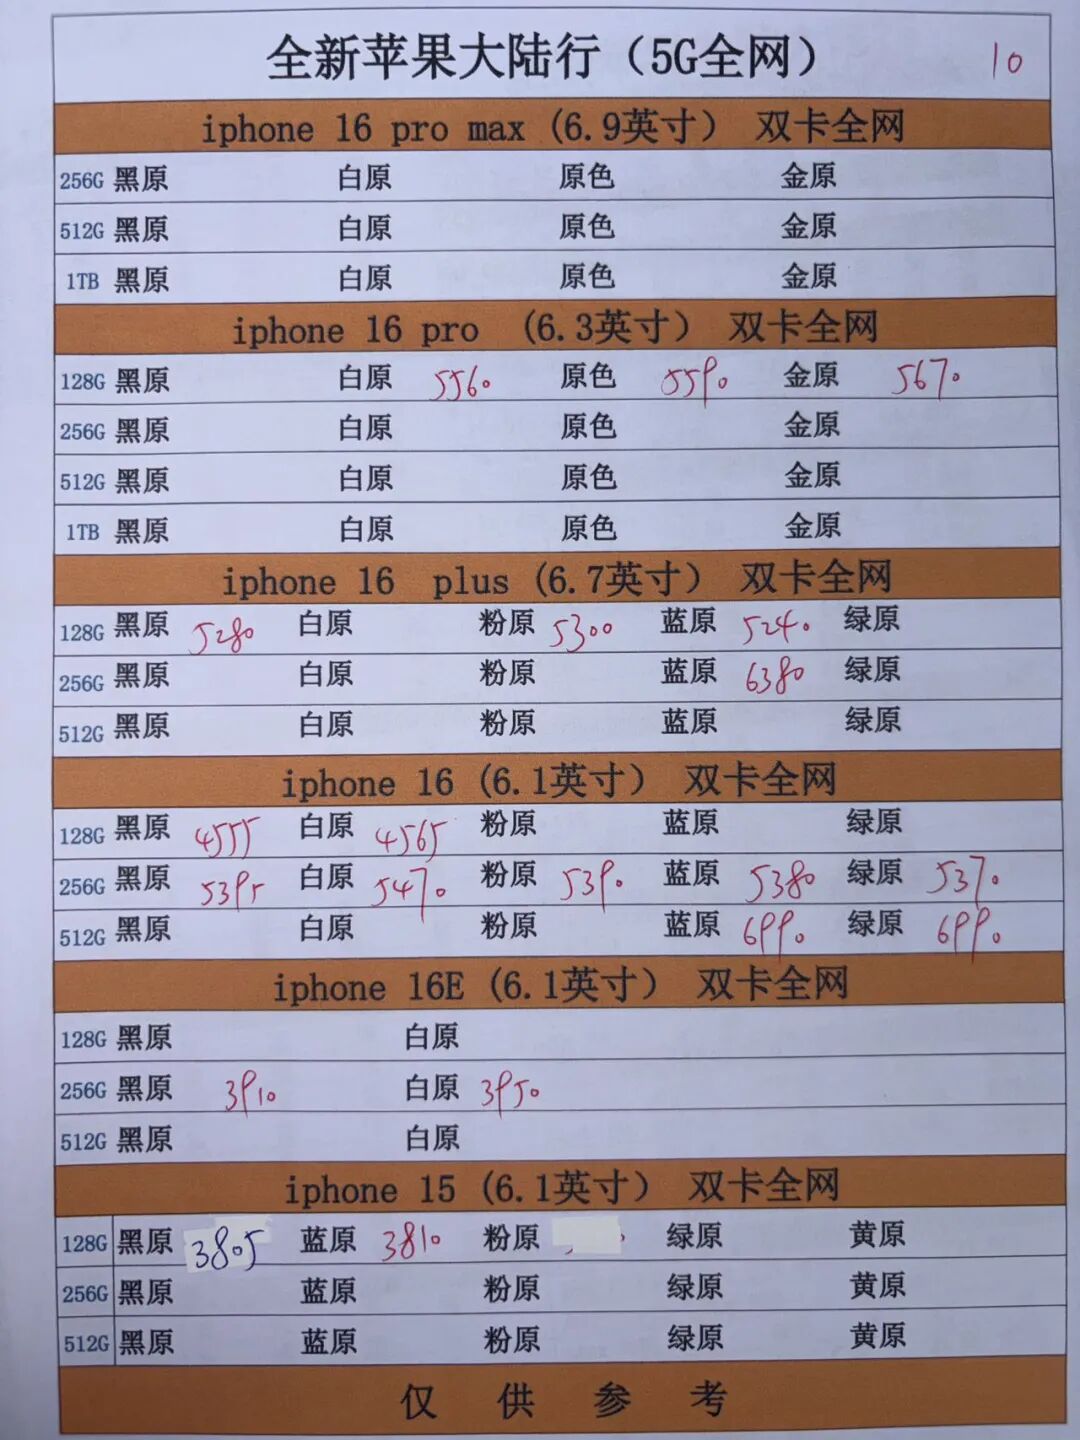 全新苹果大陆行（5G全网） 10
iphone 16 pro max (6.9英寸） 双卡全网
256G 黑原 白原 原色 金原
512G 黑原 白原 原色 金原
1TB 黑原 白原 原色 金原
iphone 16 pro （6.3英寸） 双卡全网
128G 黑原 白原 5560 原色 5590 金原 5670
256G 黑原 白原 原色 金原
512G 黑原 白原 原色 金原
1TB 黑原 白原 原色 金原
iphone 16 plus (6.7英寸） 双卡全网
128G 黑原 5280 白原 粉原 5300 蓝原 5240 绿原
256G 黑原 白原 粉原 蓝原 6380 绿原
512G 黑原 白原 粉原 蓝原 绿原
iphone 16 (6.1英寸） 双卡全网
128G 黑原 4555 白原 4565 粉原 蓝原 绿原
256G 黑原 5395 白原 5470 粉原 5390 蓝原 5380 绿原 5370
512G 黑原 白原 粉原 蓝原 6990 绿原 6990
iphone 16E (6.1英寸） 双卡全网
128G 黑原 白原
256G 黑原 3910 白原 3950
512G 黑原 白原
iphone 15 (6.1英寸） 双卡全网
128G 黑原 3805 蓝原 3810 粉原 绿原 黄原
256G 黑原 蓝原 粉原 绿原 黄原
512G 黑原 蓝原 粉原 绿原 黄原
仅供参考